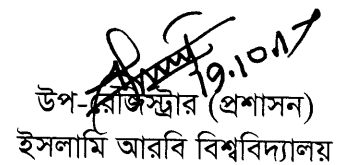 ১৭.১০.১৭
উপ-রেজিস্ট্রার (প্রশাসন)
ইসলামি আরবি বিশ্ববিদ্যালয়